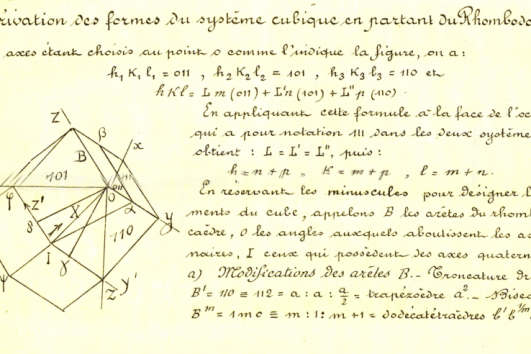 rivation des formes du système cubique en partant du Rhombodo
axes étant choisis au point o comme l'indique la figure, on a:
h₁ K₁ l₁ = 011 , h₂ K₂ l₂ = 101 , h₃ K₃ l₃ = 110 et
h K l = L m (011) + L' n (101) + L'' p (110) .
En appliquant cette formule à la face de l'oc
qui a pour notation 111 dans les deux système
obtient : L = L' = L'', puis :
h = n + p , K = m + p , l = m + n .
En réservant les minuscules pour désigner l
ments du cube, appelons B les arêtes du rhom
caèdre, O les angles auxquels aboutissent les a
naires, I ceux qui possèdent des axes quatern
a) Modifications des arêtes B. - Troncature dr
B' = 110 ≡ 112 = a : a : a/2 = trapézoèdre a². - Bise
Bᵐ = 1 m 0 ≡ m : 1 : m + 1 = dodécatétraèdres
Z
β
x
B
101
O
φ
Z'
δ
X
α
I
110
y
γ
ψ
Z
y'